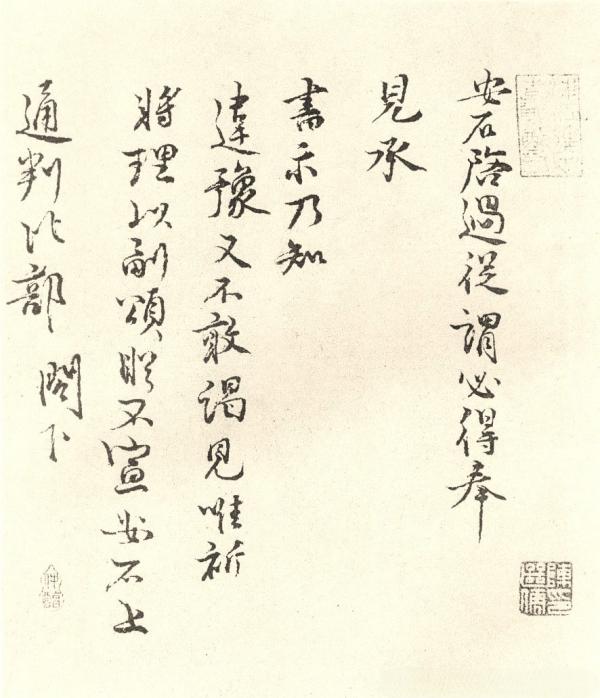 安石啓過從謂必得奉
見承
書示乃知
違豫又不敢謁見唯祈
將理以副頌眹不宣安石上
通判比部 閤下